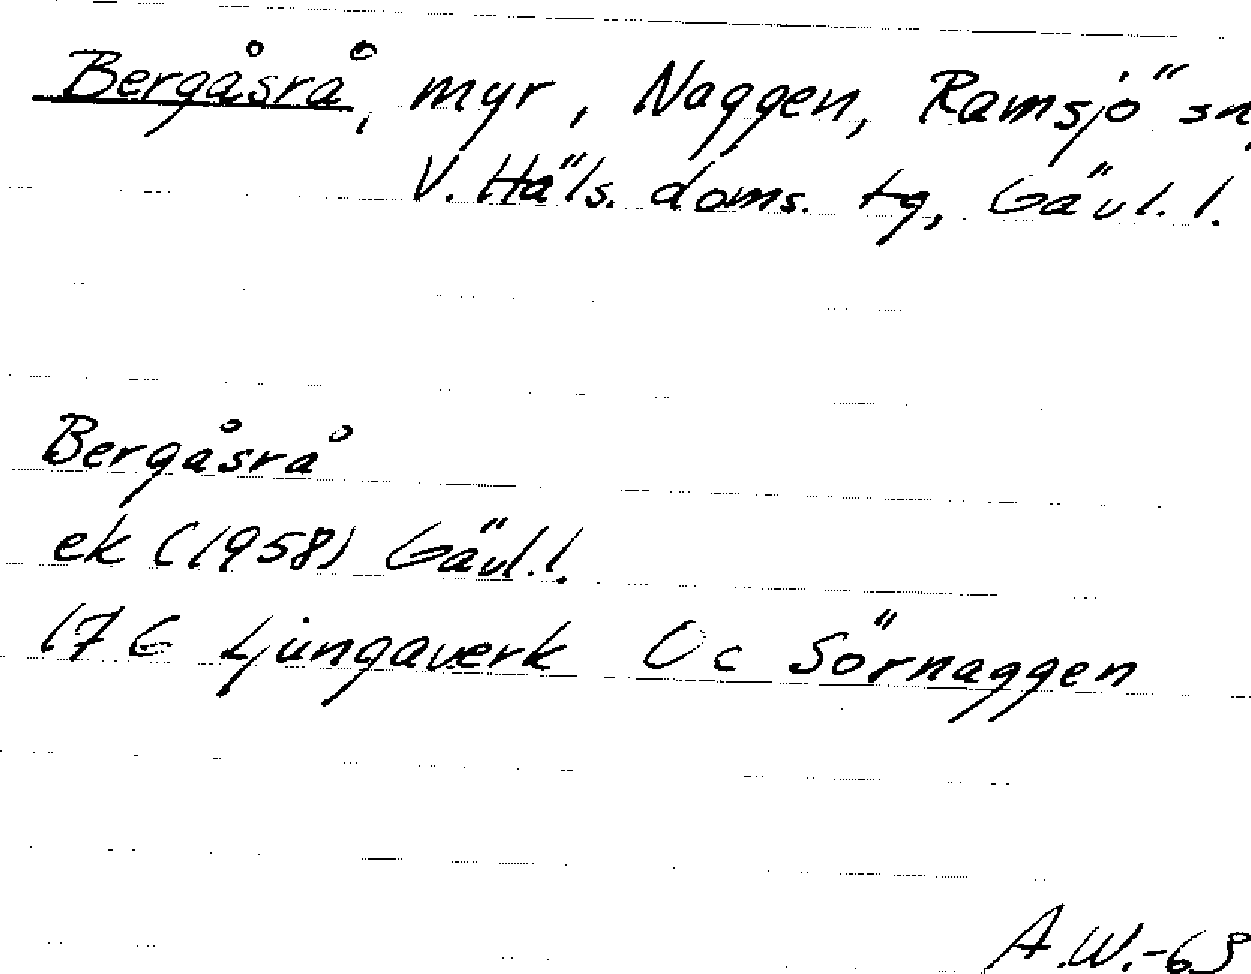 Bergåsrå, myr, Naggen, Ramsjö sn,
V. Häls. doms. tg, Gävl. l.
Bergåsrå
ek (1958) Gävl. l.
17 G Ljungaverk 0c Sörnaggen
A.W.-69